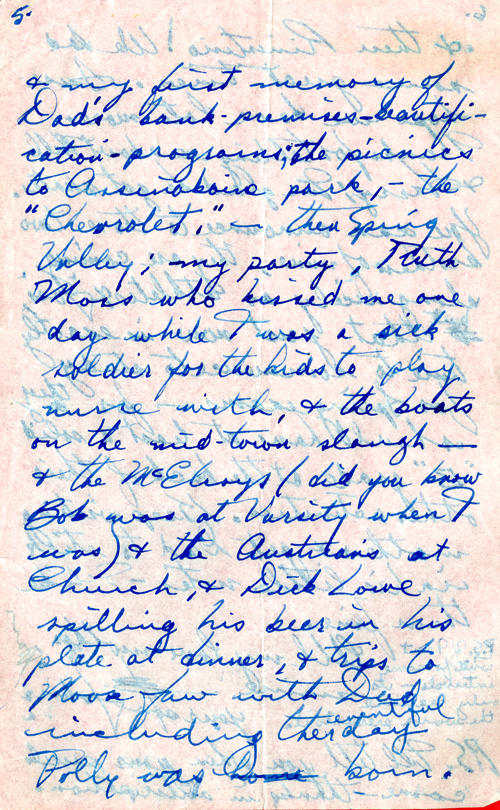 5.
& my first memory of
Dad's bank-premises-beautifi-
cation-programs; the picnics
to Assinaboine park, - the
"Chevrolet," - then Spring
Valley; - my party, Ruth
Moss who kissed me one
day while I was a sick
soldier for the kids to play
nurse with, & the boats
on the mid-town slough -
& the McElroys (did you know
Bob was at Varsity when I
was) & the Austrians at
Church, & Dick Lowe
spilling his beer in his
plate at dinner, & trips to
Moose Jaw with Dad
including the eventful day
Polly was born.